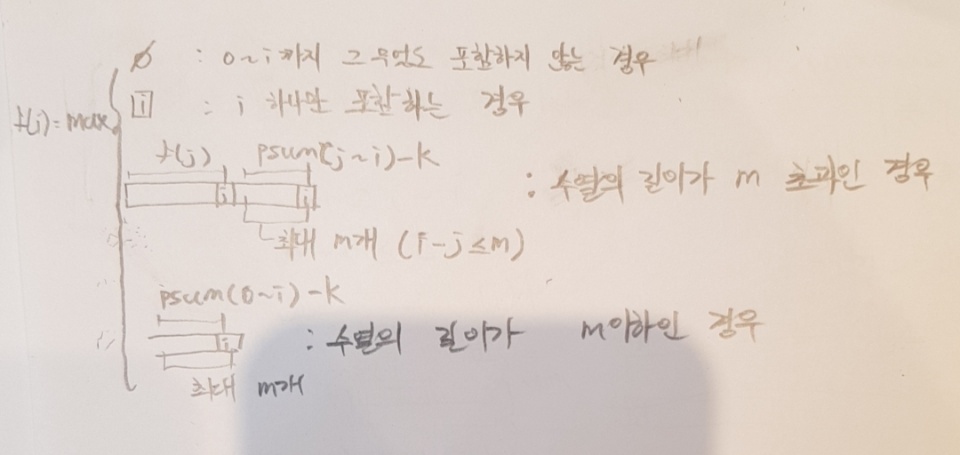 ø : 0~i까지 그 무엇도 포함하지 않는 경우
f(i)=max
i : i 하나만 포함하는 경우
f(j) psum(j~i)-k
j i : 수열의 길이가 m 초과인 경우
최대 m개 (i-j≤m)
psum(0~i)-k
i : 수열의 길이가 m이하인 경우
최대 m개